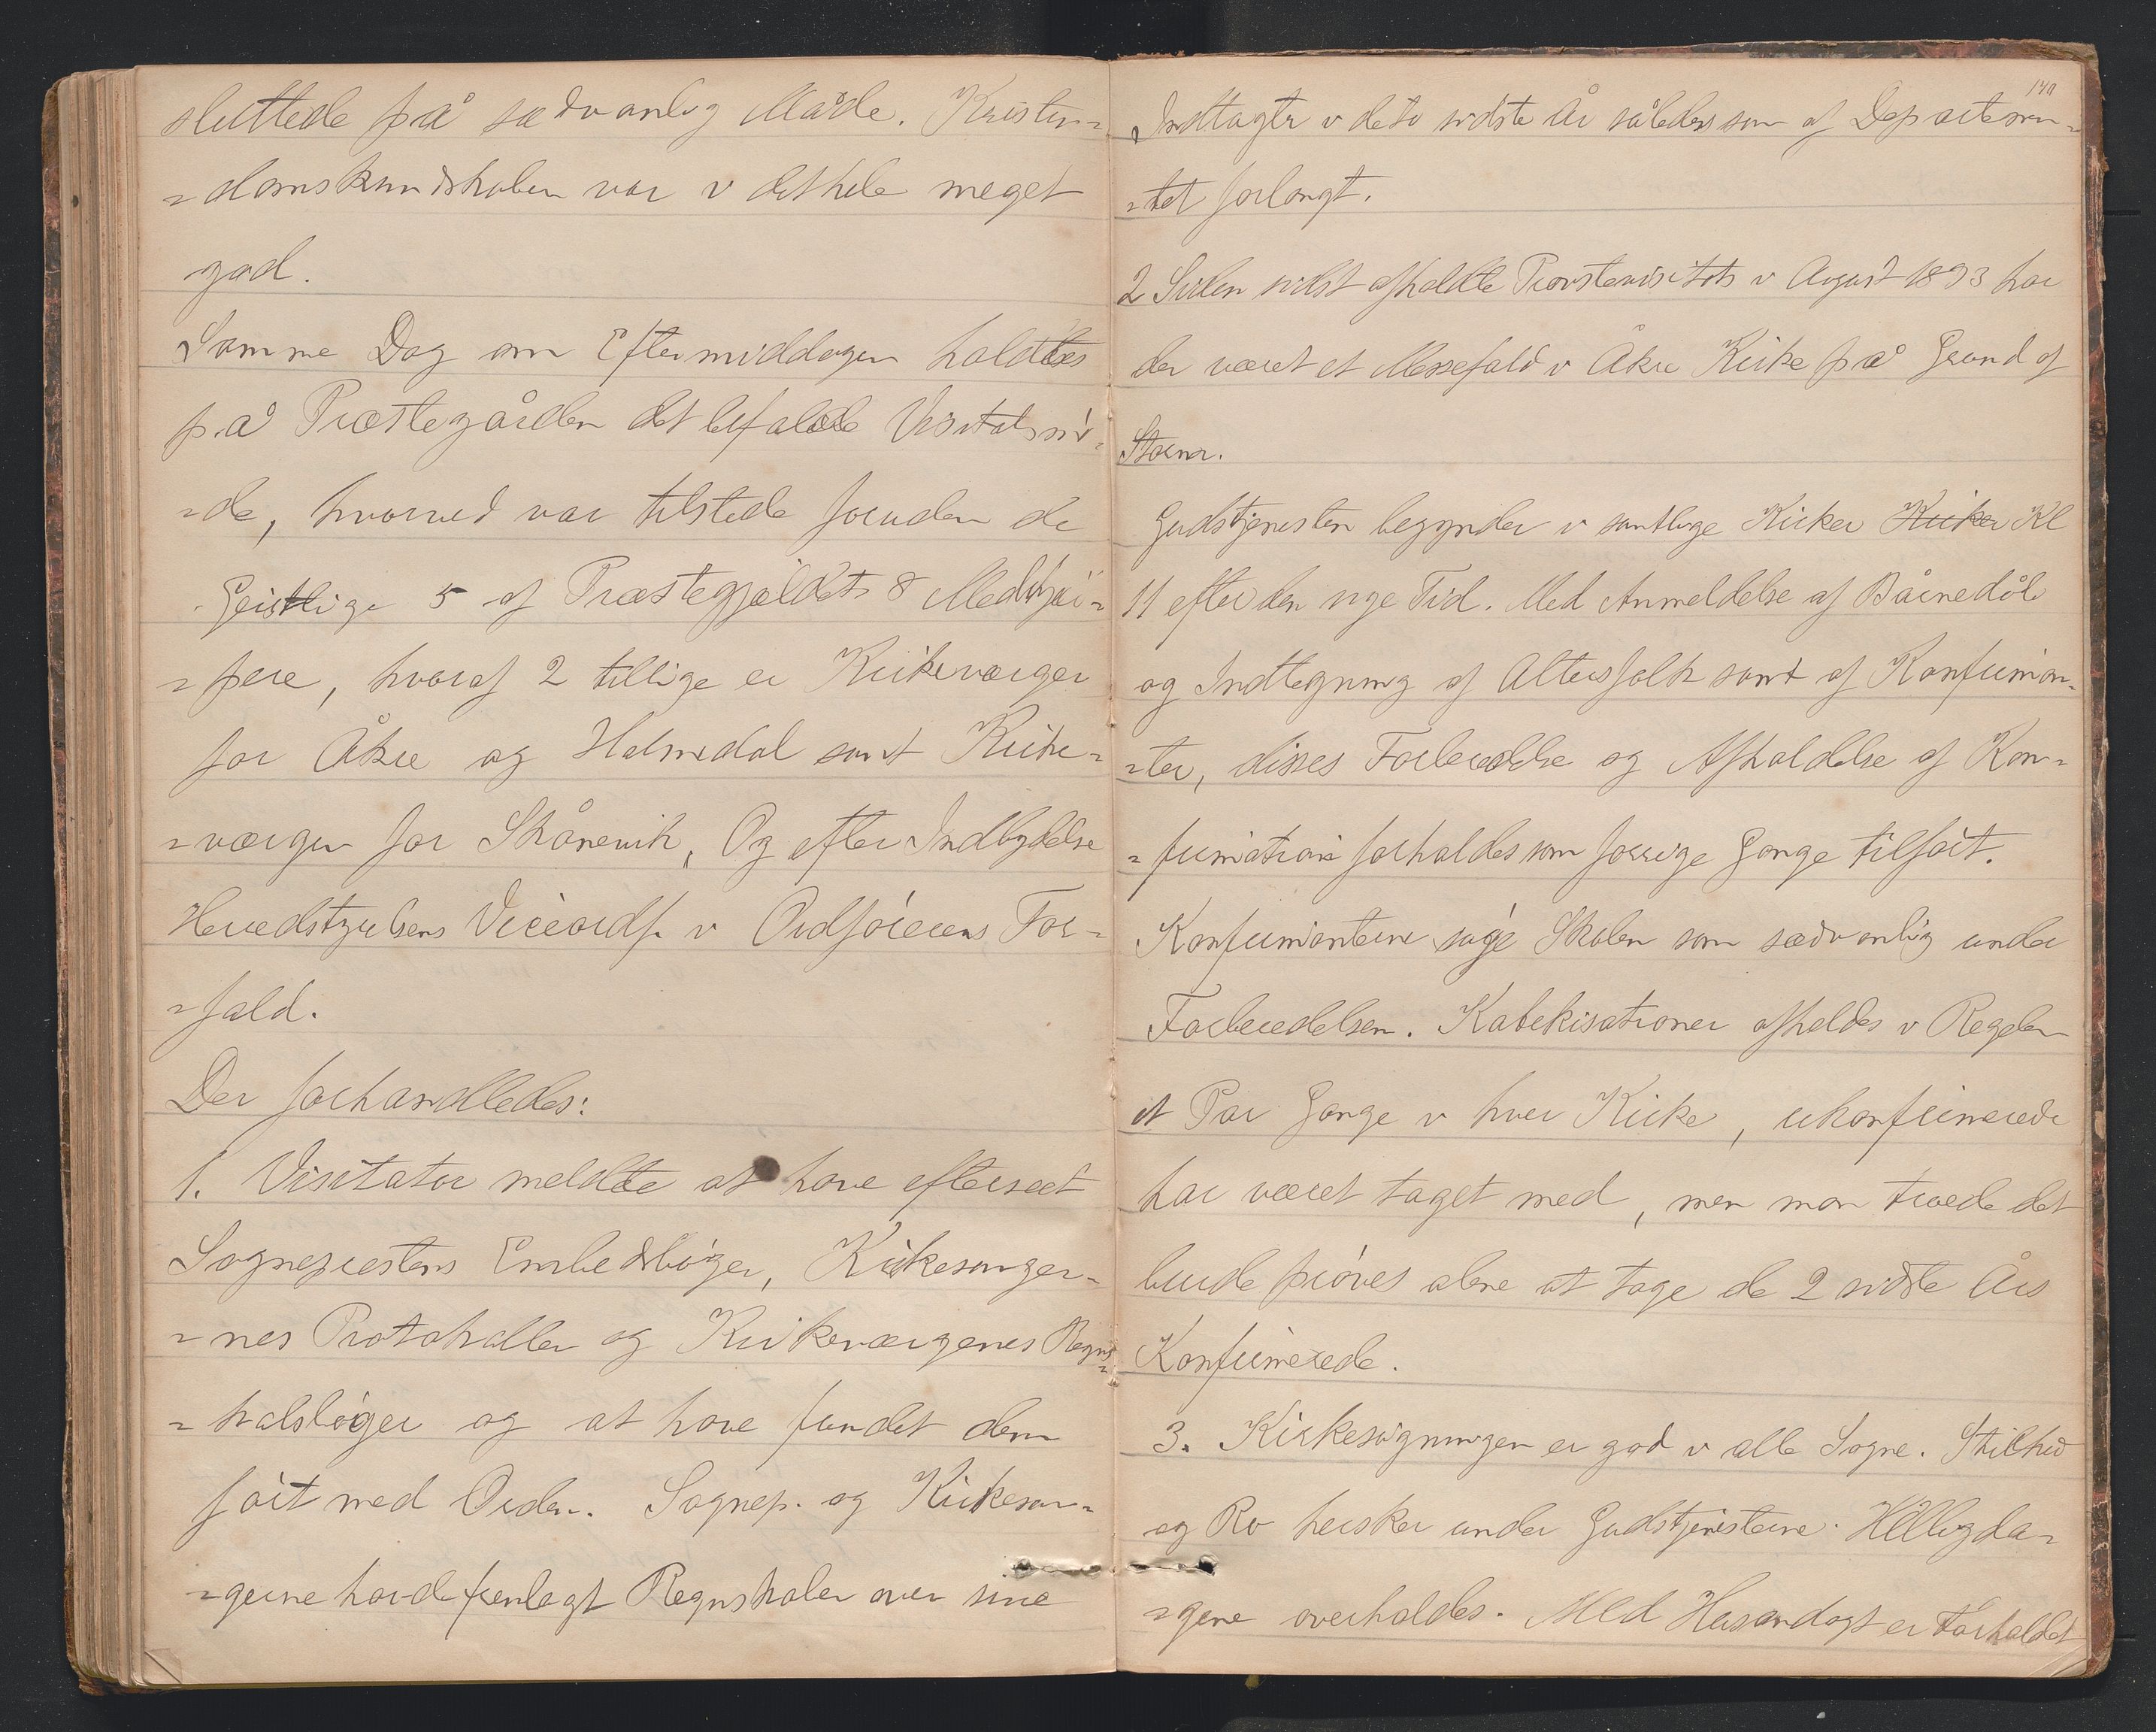 sluttede på sædvanlig Måde. Kristen-
-domskundskaben var i det hele meget
god.
Samme Dag om Eftermiddagen holdtes
på Præstegården det befalede Visitatsmö-
-de, hvorved var tilstede foruden de
Geistlige 5 af Præstegjældets 8 Medhjæl-
-pere, hvoraf 2 tillige er Kirkeværger
for Åkre og Holmedal samt Kirke-
-værgen for Skånevik, Og efter Indbydelse
Herredstyrelsens Viceordf. i Ordförerens For-
-fald.
Der forhandledes:
1. Visitator meldte at have efterseet
Sogneprestens Embedsböger, Kirkesanger-
-nes Protokoller og Kirkeværgenes Regns-
-kabsböger og at have fundet dem
fört med Orden. Sognep. og Kirkesan-
-gerne havde fremlagt Regnskaber over sine
140
Indtægter i de to sidste År således som af Departemen-
-tet forlangt.
2 Siden sidst afholdte Provstevisitats i August 1893 har
der været et Messefald i Åkre Kirke på Grund af
Storm.
Gudstjenesten begynder i samtlige Kirker Kirker Kl
11 efter den nye Tid. Med Anmeldelse af Bårnedåb
og Indtegning af Altersfolk samt af Konfirman-
-ter, disses Forberedelse og Afholdelse af Kon-
-firmation forholdes som forrige Gange tilfört.
Konfirmanterne söge Skolen som sædvanlig under
Forberedelsen. Katekisationer afholdes i Regelen
et Par Gange i hver Kirke, ukonfirmerede
har været taget med, men man troede det
burde pröves alene at tage de 2 sidste Års
Konfirmerede.
3. Kirkesögningen er god i alle Sogne. Stilhed
og Ro hersker under Gudstjenesterne. Helligda-
-gene overholdes. Med Husandagt er Forholdet